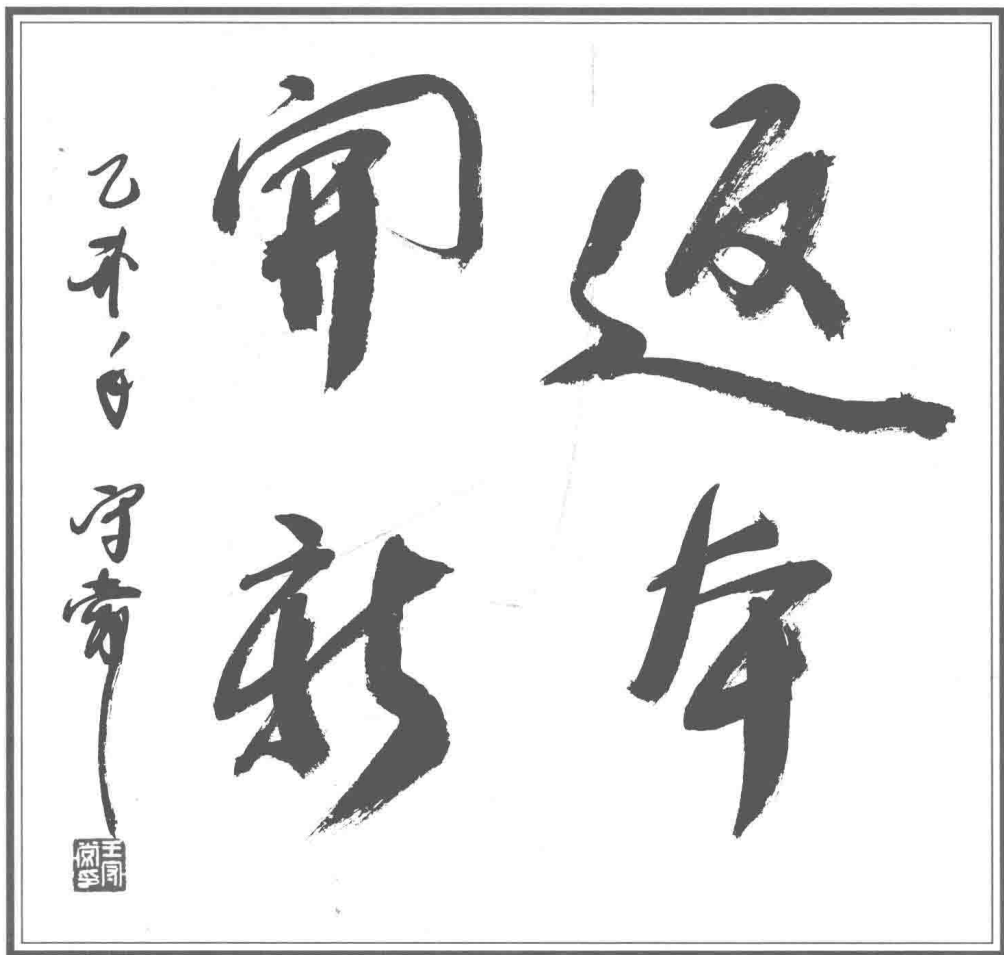 返本
開新
乙未年 守常
王守
常印